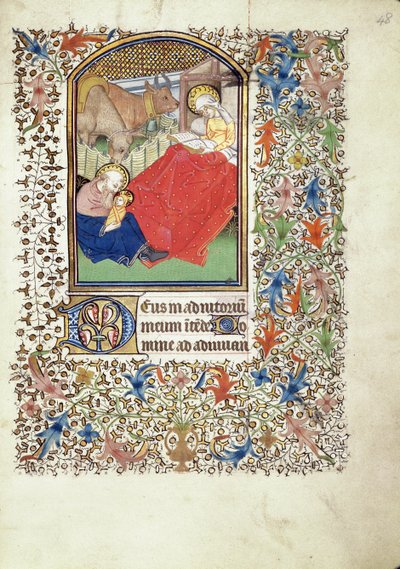 48
Deus in adiutoriū
meum ītēde Do
mine ad adiuuan